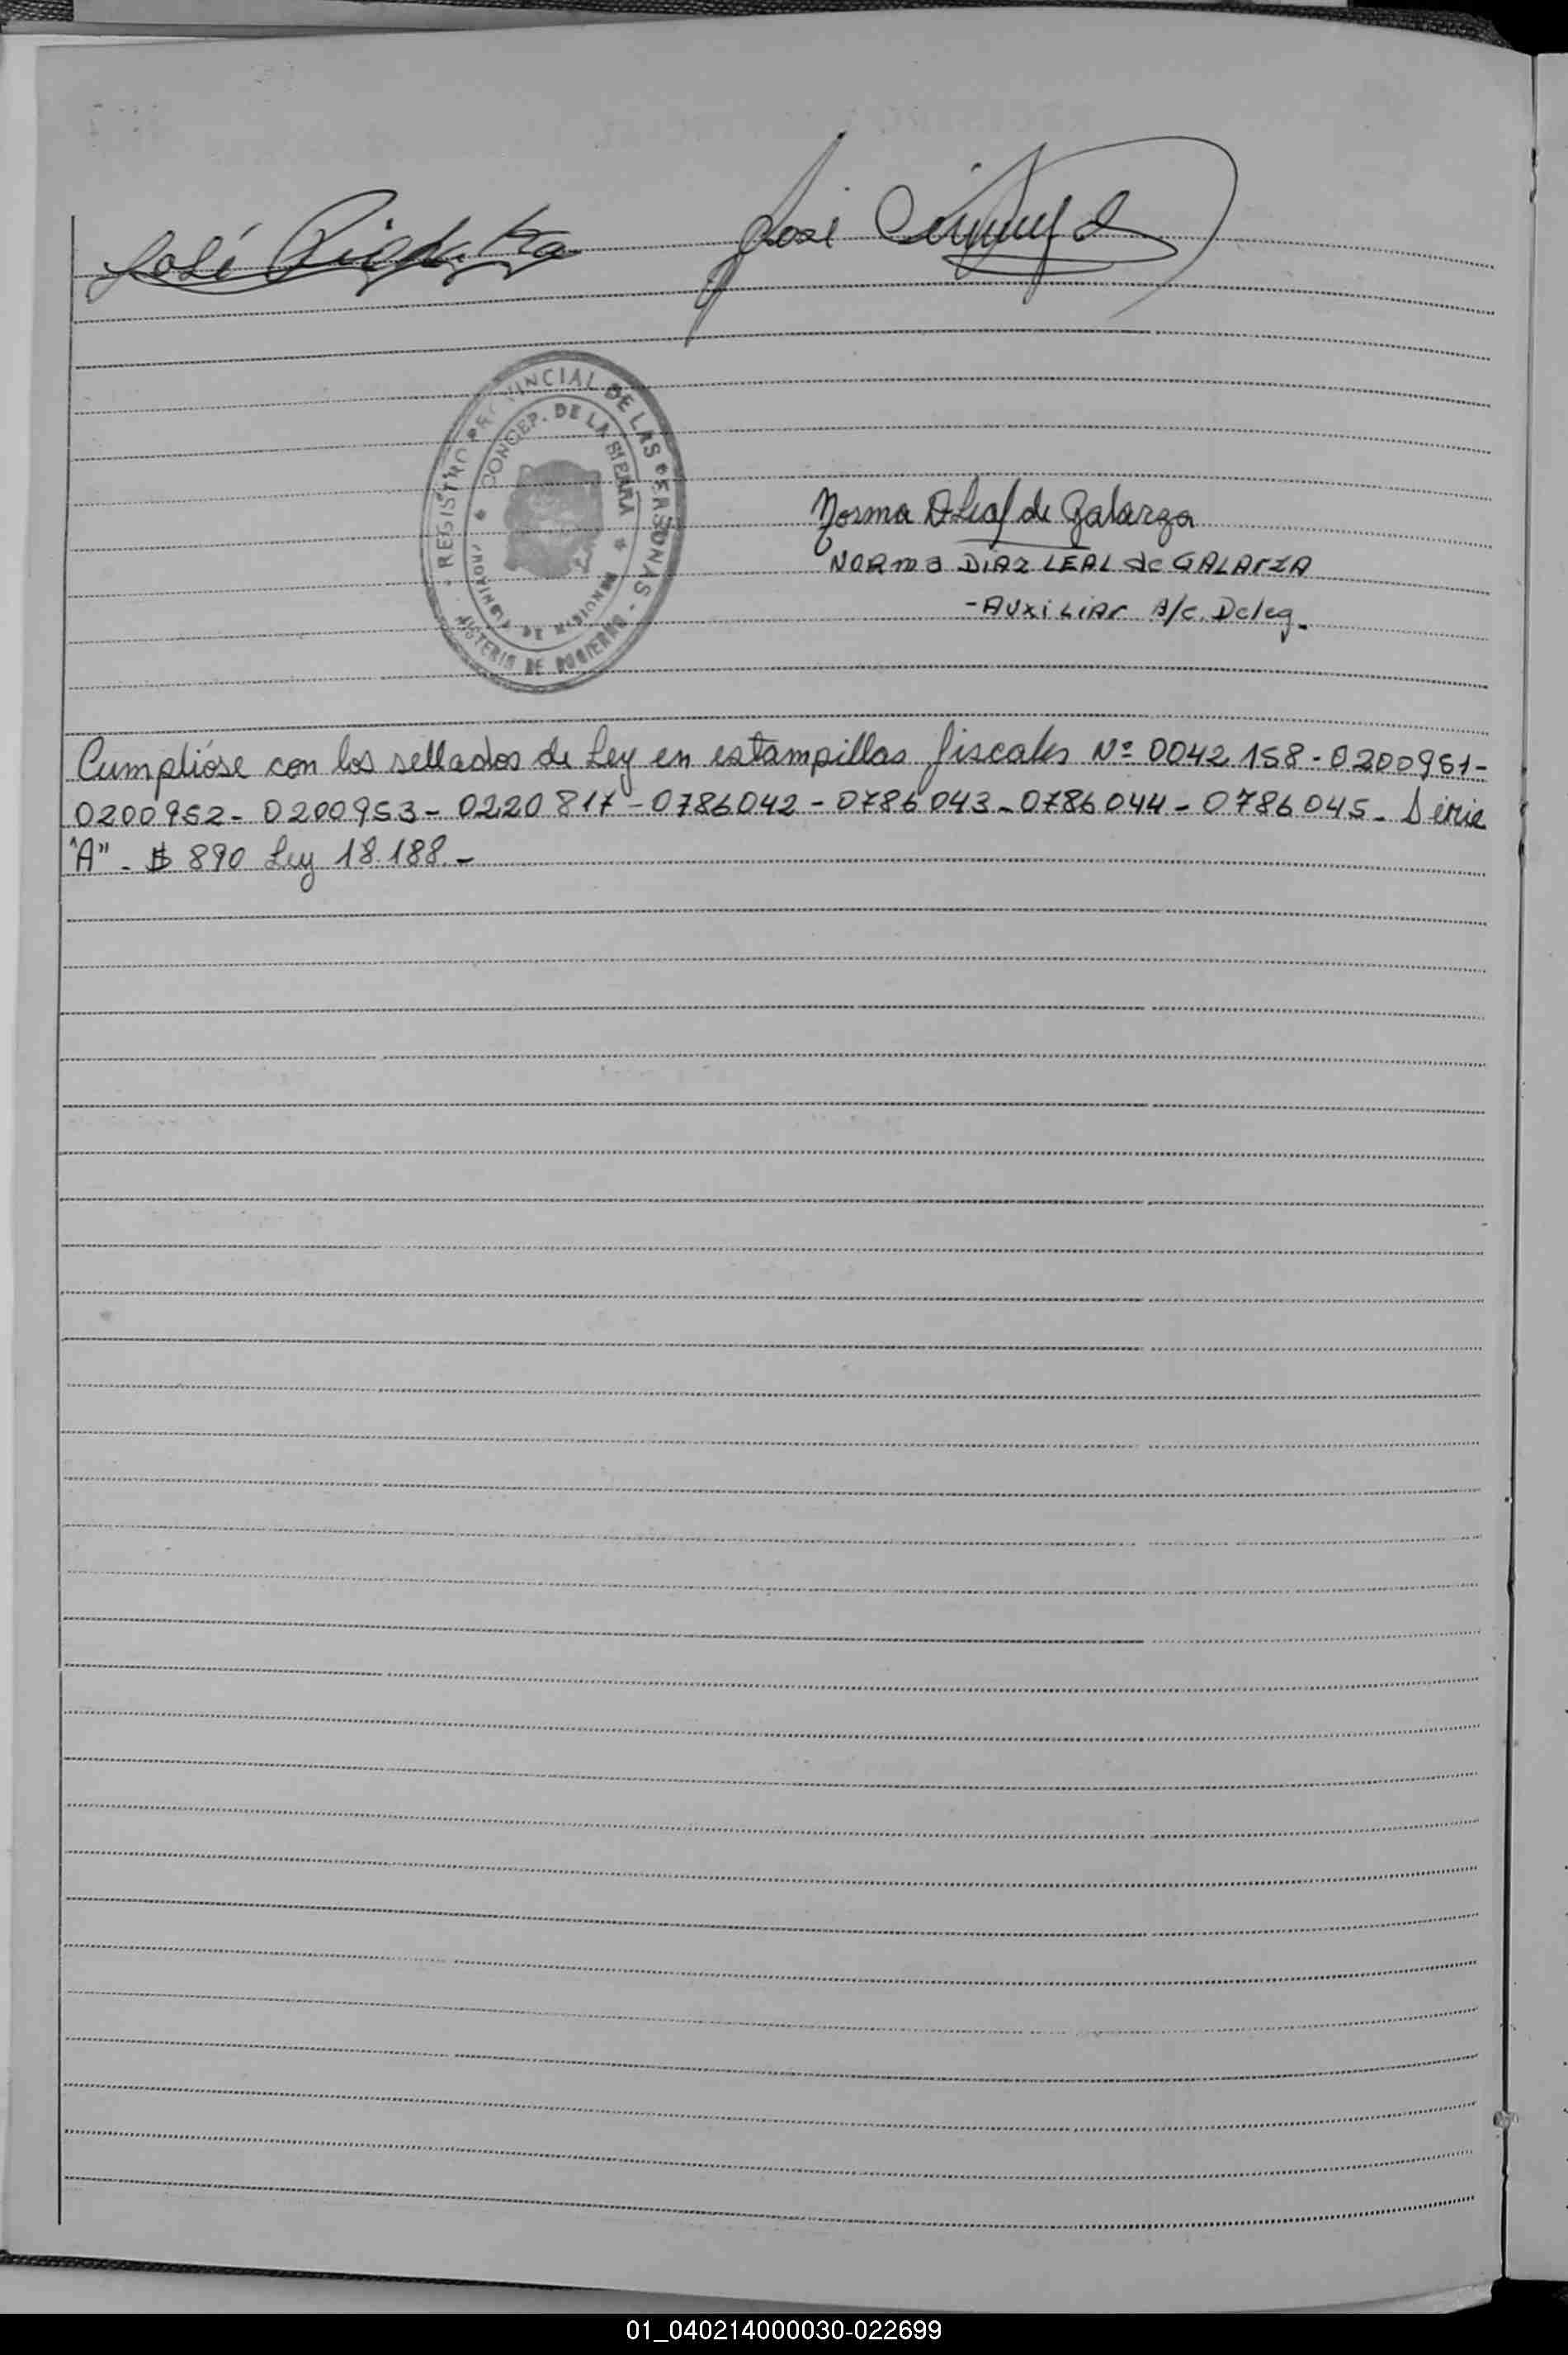 José
José
REGISTRO PROVINCIAL DE LAS PERSONAS - MINISTERIO DE GOBIERNO -
CONCEP. DE LA SIERRA
PROVINCIA DE MISIONES
Norma D. Leal de Galarza
NORMA DIAZ LEAL de GALARZA
-AUXILIAR A/C. Deleg.
Cumplióse con los sellados de Ley en estampillas fiscales Nº 0042158-0200951-
0200952- 0200953- 0220817-0786042-0786043-0786044-0786045- Serie
"A" - $ 890 Ley 18.188.-
01_040214000030-022699